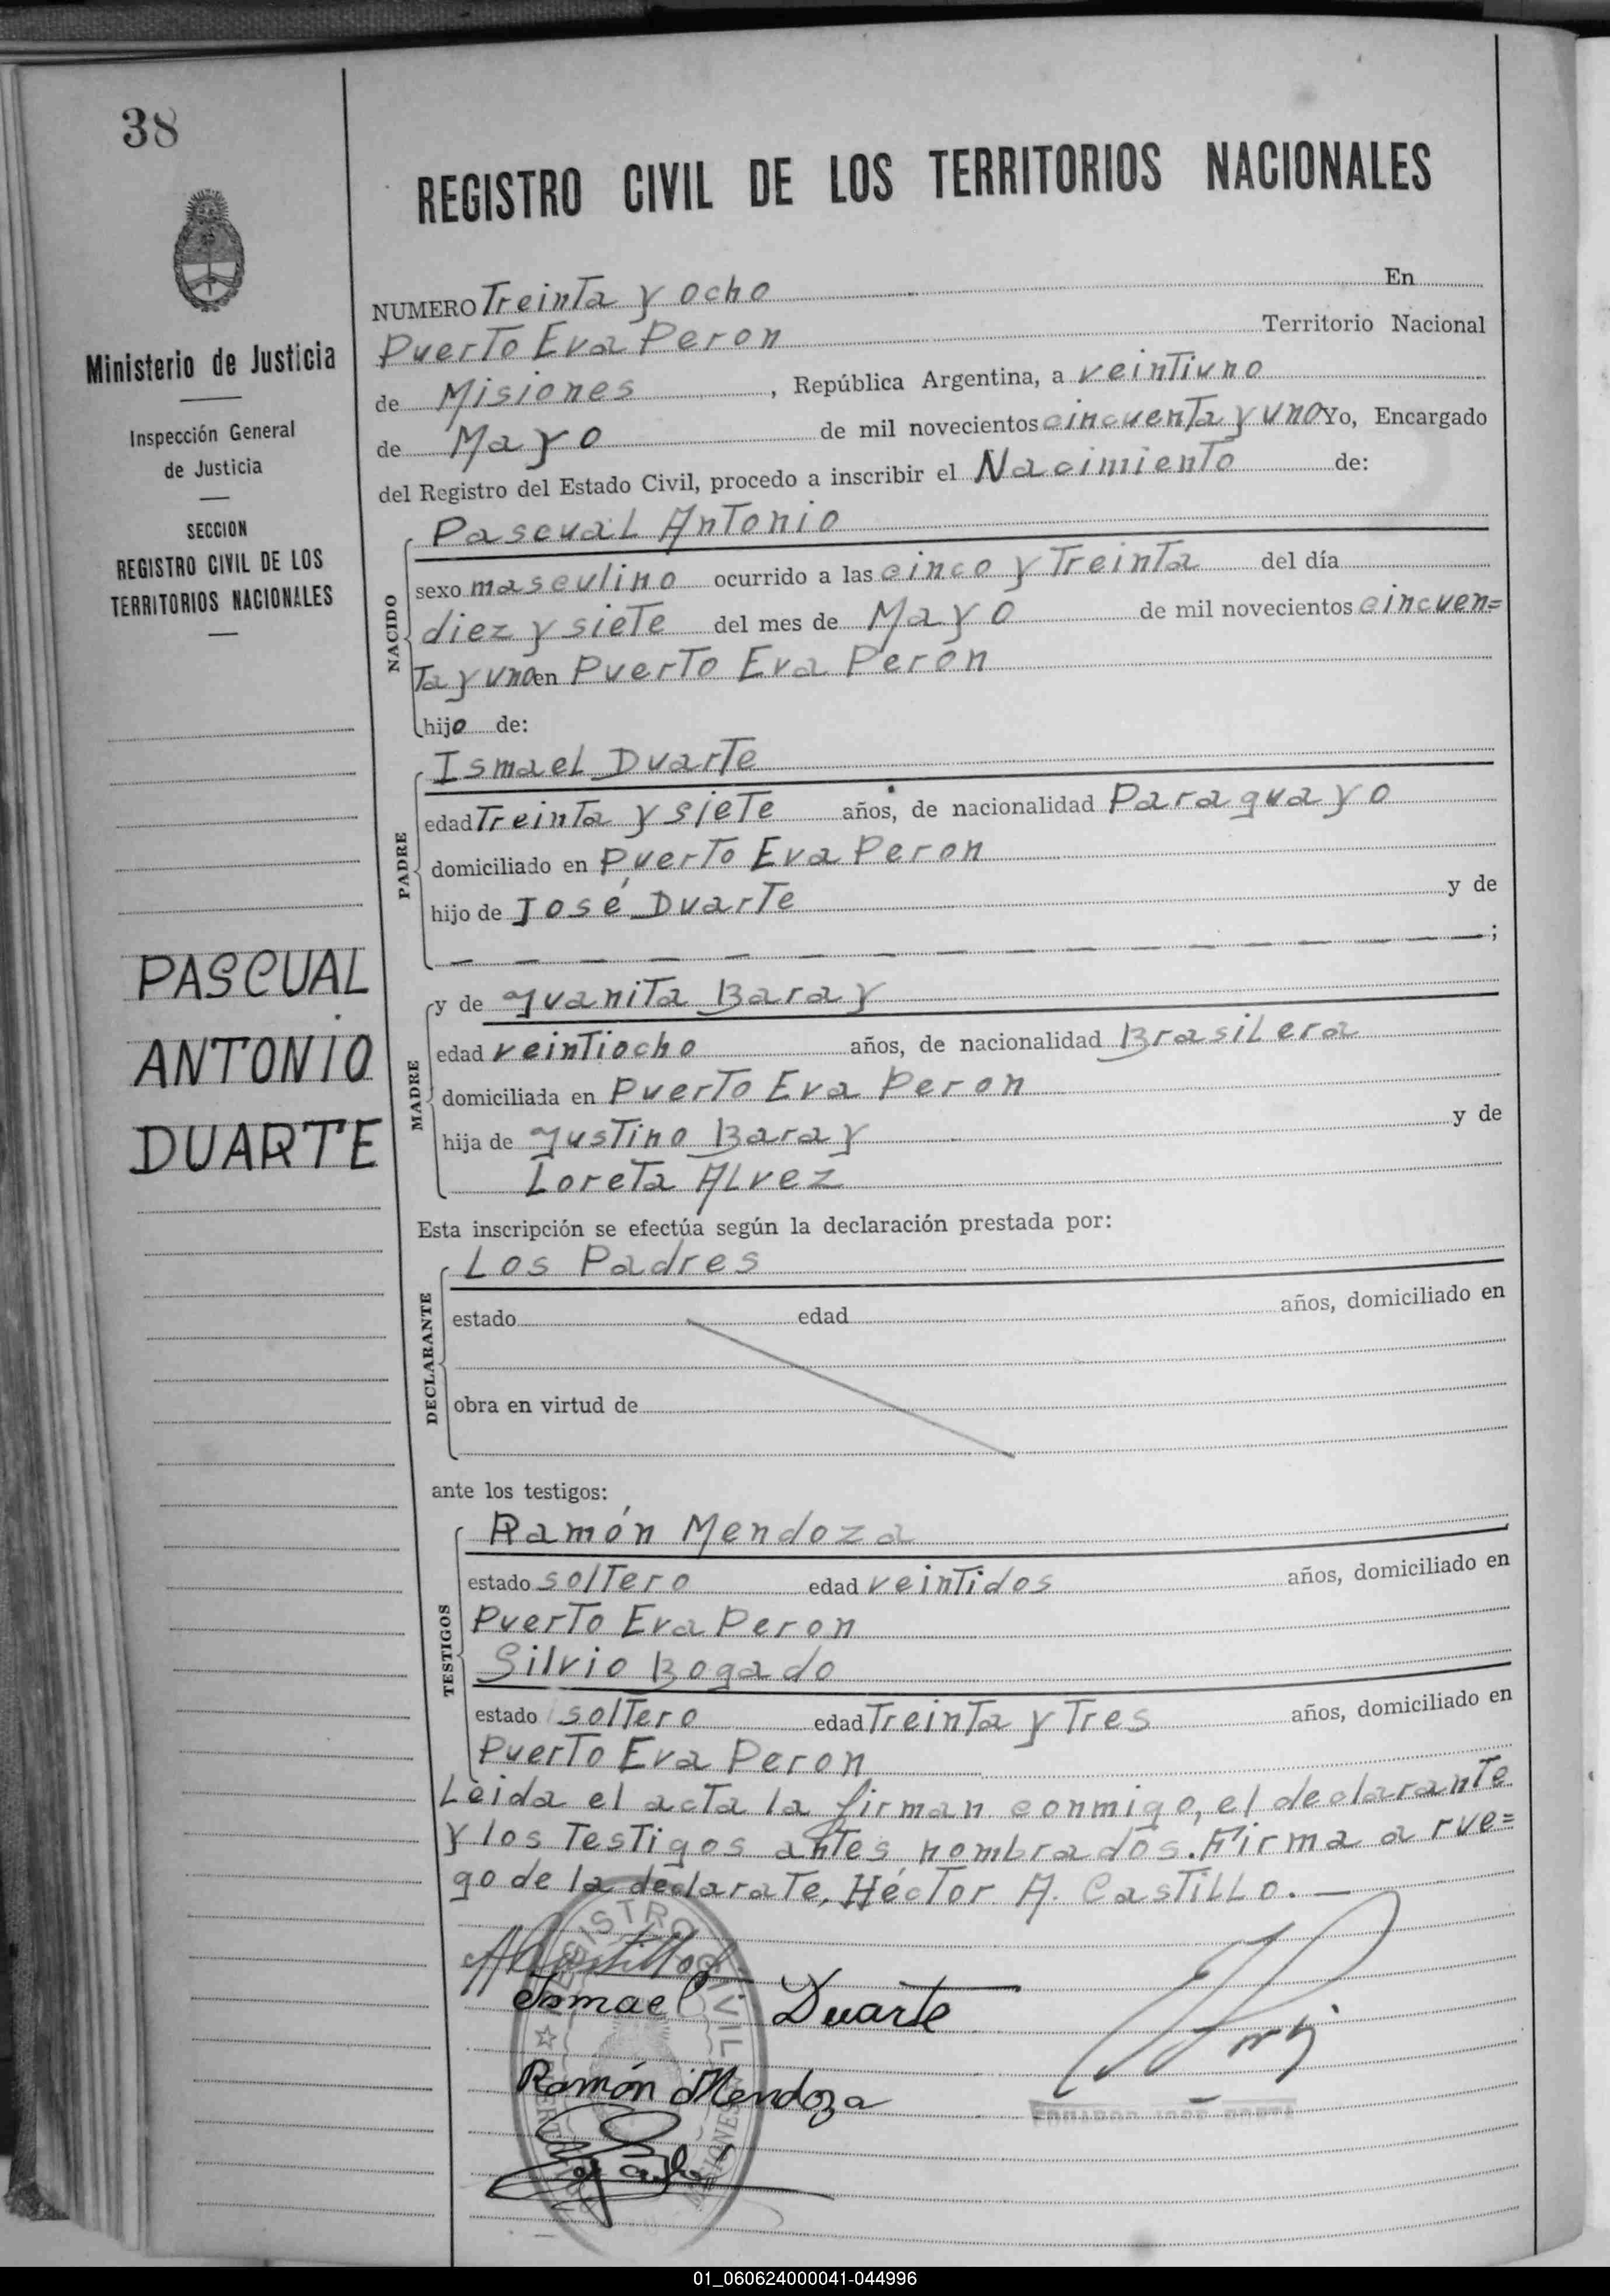 38
Ministerio de Justicia
Inspección General
de Justicia
SECCION
REGISTRO CIVIL DE LOS
TERRITORIOS NACIONALES
PASCUAL
ANTONIO
DUARTE
REGISTRO CIVIL DE LOS TERRITORIOS NACIONALES
NUMERO Treinta y ocho En
Puerto Eva Peron Territorio Nacional
de Misiones, República Argentina, a veintiuno
de Mayo de mil novecientos cincuenta y uno Yo, Encargado
del Registro del Estado Civil, procedo a inscribir el Nacimiento de:
NACIDO
Pascual Antonio
sexo masculino ocurrido a las cinco y Treinta del día
diez y siete del mes de Mayo de mil novecientos cincuen=
Ta y uno en Puerto Eva Perón
hijo de:
PADRE
Ismael Duarte
edad Treinta y siete años, de nacionalidad Paraguayo
domiciliado en Puerto Eva Peron
hijo de José Duarte y de
— — — — — — — — — — — — — ;
MADRE
y de Juanita Baray
edad veintiocho años, de nacionalidad Brasilera
domiciliada en Puerto Eva Peron
hija de Justino Baray y de
Loreta Alvez
Esta inscripción se efectúa según la declaración prestada por:
DECLARANTE
Los Padres
estado edad años, domiciliado en
obra en virtud de
ante los testigos:
TESTIGOS
Ramón Mendoza
estado soltero edad veintidos años, domiciliado en
Puerto Eva Peron
Silvio Bogado
estado soltero edad Treinta y Tres años, domiciliado en
Puerto Eva Peron
Leida el acta la firman conmigo, el declarante
y los Testigos antes nombrados. Firma a rue=
go de la declarate, Héctor A. Castillo. —
HACastillo
Ismael Duarte
Ramón Mendoza
REGISTRO CIVIL
MISIONES
01_060624000041-044996